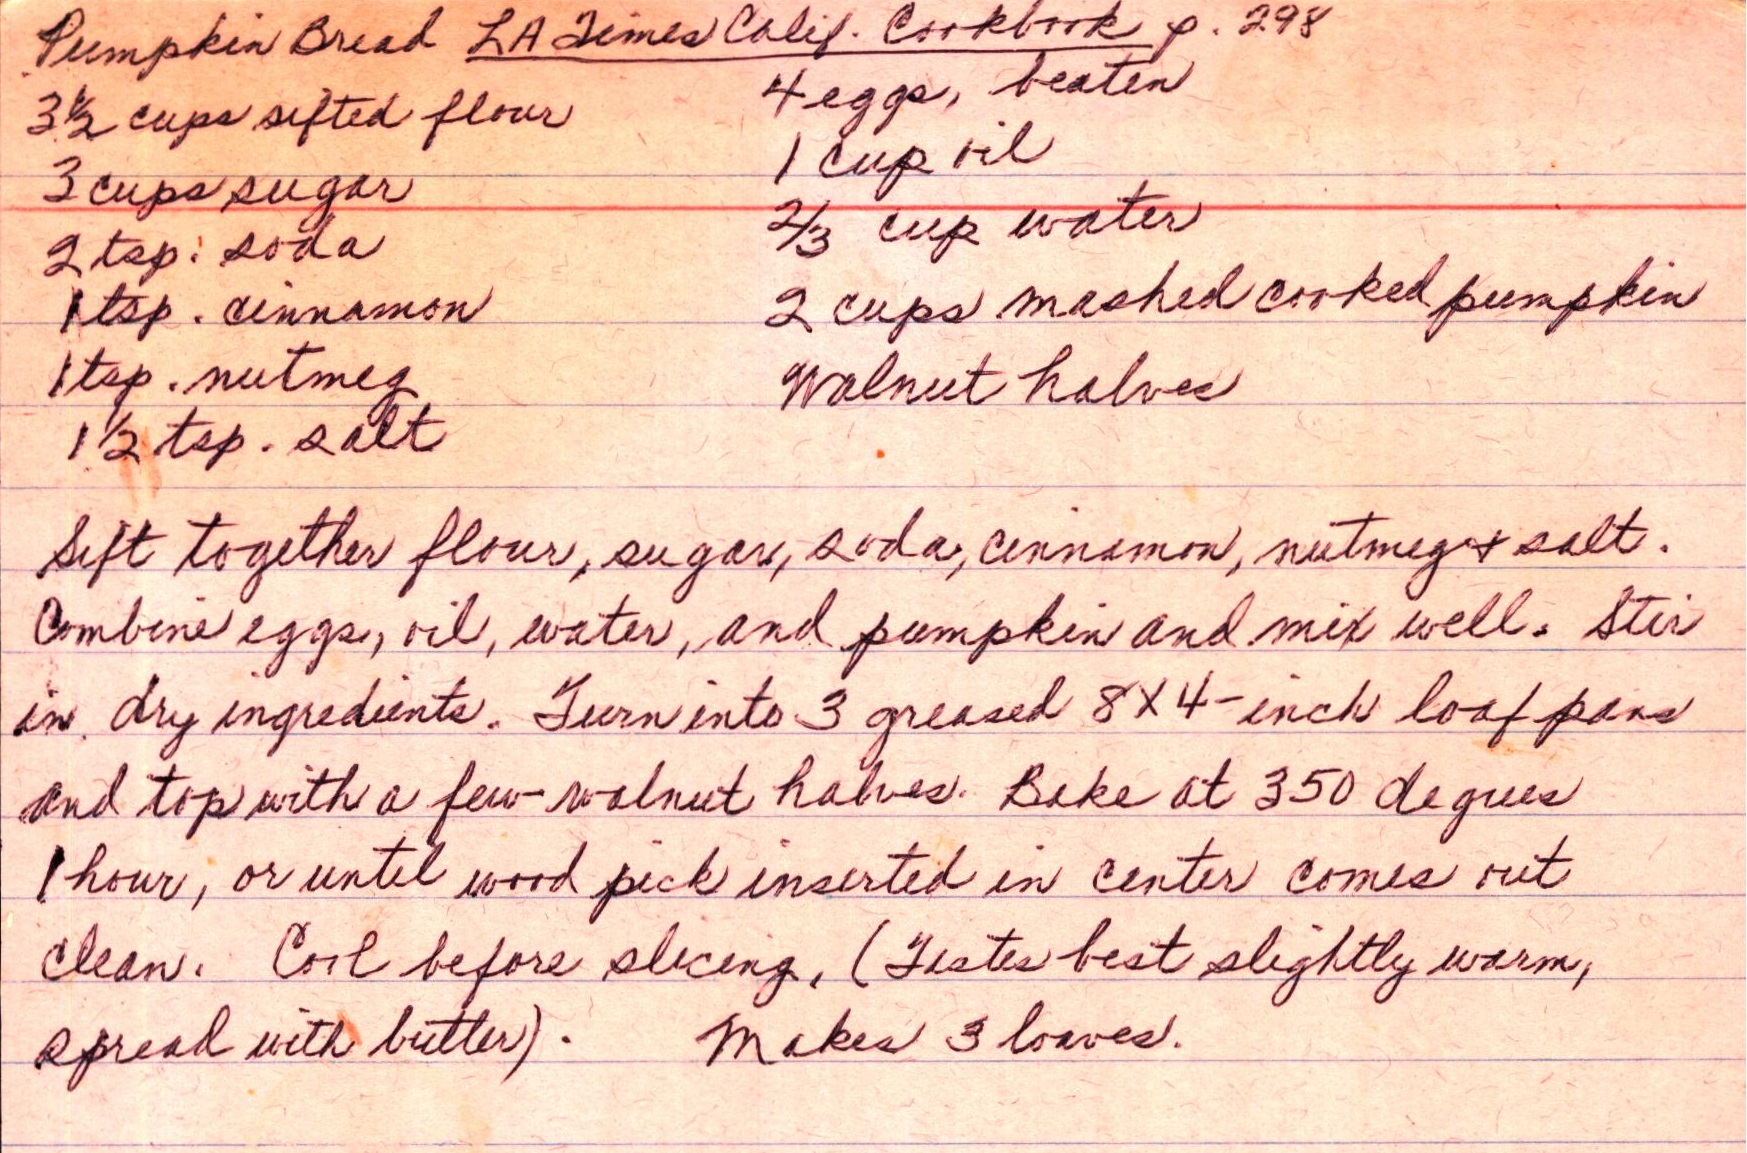 Pumpkin Bread LA Times Calif. Cookbook p. 298
3 1/2 cups sifted flour
3 cups sugar
2 tsp. soda
1 tsp. cinnamon
1 tsp. nutmeg
1 1/2 tsp. salt
4 eggs, beaten
1 cup oil
2/3 cup water
2 cups mashed cooked pumpkin
Walnut halves
Sift together flour, sugar, soda, cinnamon, nutmeg & salt.
Combine eggs, oil, water, and pumpkin and mix well. Stir
in dry ingredients. Turn into 3 greased 8X4-inch loaf pans
and top with a few walnut halves. Bake at 350 degrees
1 hour, or until wood pick inserted in center comes out
clean. Cool before slicing, (Tastes best slightly warm,
spread with butter). Makes 3 loaves.